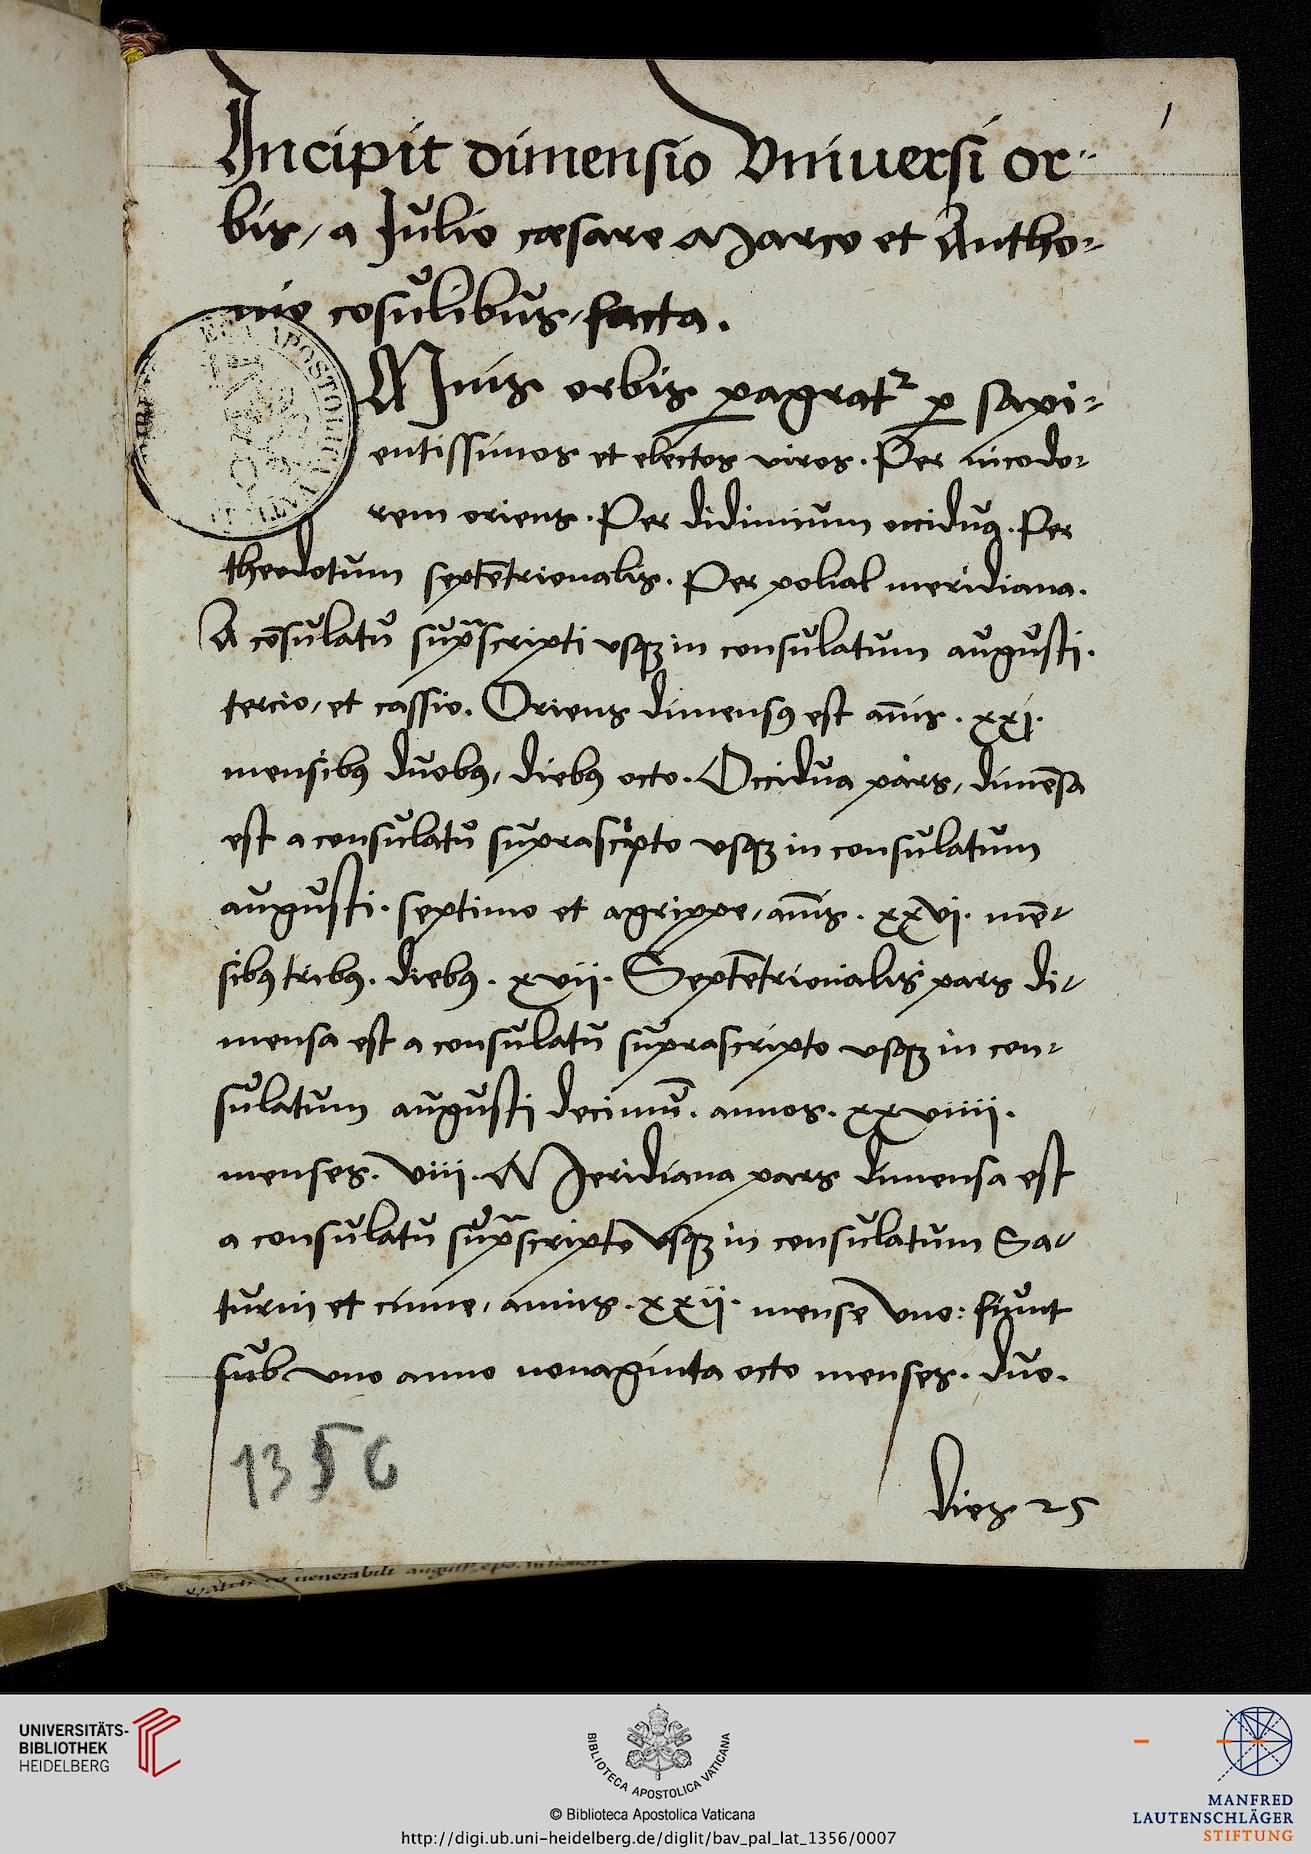 1
Incipit dimensio Vniuersi or-
bis, a Julio cæsare Marco et Antho-
nio cosulibus, facta.
Omnis orbis pagratr p sapi-
entissimos et electos viros. Per nicodo-
rem oriens. Per didimicum occidua. Per
theodotum septētrionalis. Per polial meridiana.
A cōsulatu supscripti vsqz in consulatum augusti.
tercio, et cassio. Oriens dimensꝰ est ānis. xxj.
mensibꝰ duobꝰ, diebꝰ octo. Occidua pars, dimēsa
est a consulatu suprascipto vsqz in consulatum
augusti. septimo et agrippe, annis. xxvj. mē-
sibꝰ tribꝰ. diebꝰ. xvij. Septētrionalis pars di-
mensa est a consulatu suprascripto vsqz in con-
sulatum augusti decimū. annos. xxviiij.
menses. viij. Meridiana pars dimensa est
a consulatu supscripto vsqz in consulatum Sa-
turni et cinne, annis. xxij. mense vno: fiunt
sub vno anno nonaginta octo menses. duo.
dies 25
1356
UNIVERSITÄTS-
BIBLIOTHEK
HEIDELBERG
BIBLIOTECA APOSTOLICA VATICANA
© Biblioteca Apostolica Vaticana
http://digi.ub.uni-heidelberg.de/diglit/bav_pal_lat_1356/0007
MANFRED
LAUTENSCHLÄGER
STIFTUNG